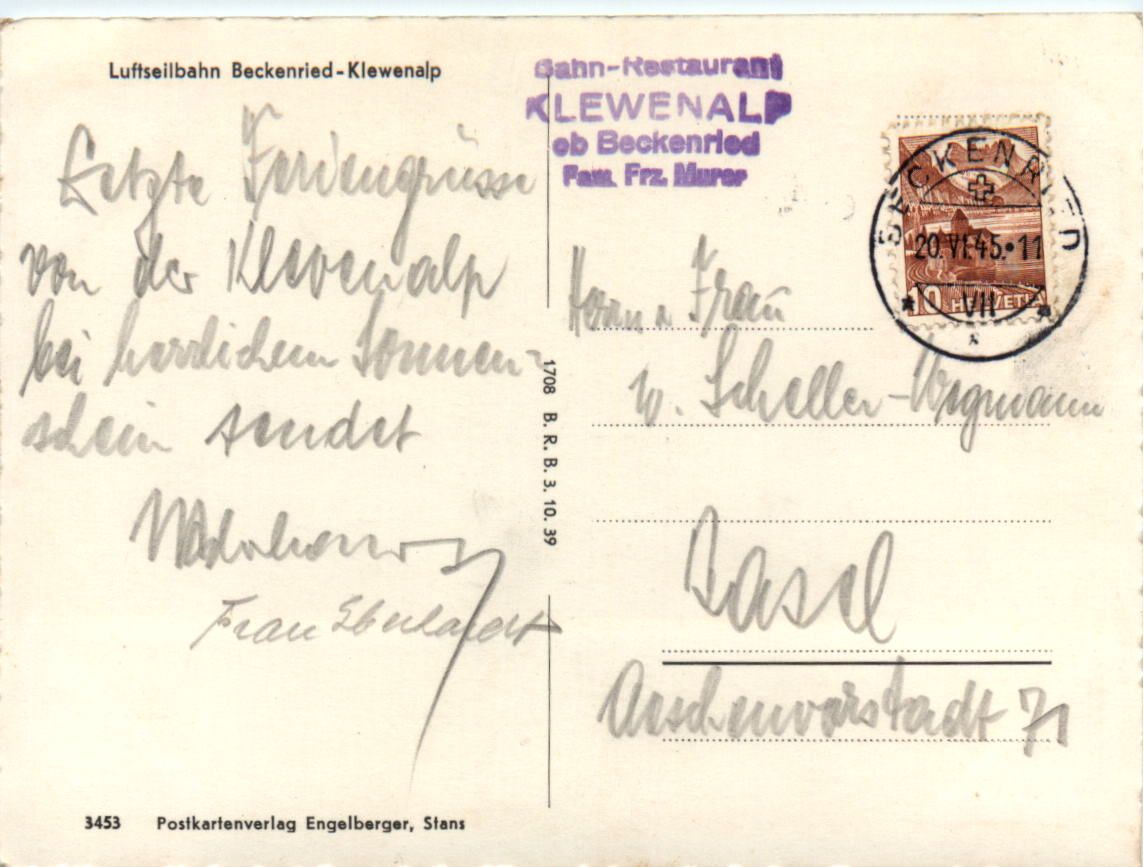 Luftseilbahn Beckenried-Klewenalp
Letzte Feriengrüsse
von der Klewenalp
bei herrlichem Sonnen-
schein sendet
Frau Eberhardt
3453 Postkartenverlag Engelberger, Stans
1708 B. R. B. 3. 10. 39
Bahn-Restaurant
KLEWENALP
ob Beckenried
Fam. Frz. Murer
BECKENRIED
20.VI.45.11
VII
10 HELVETIA
Herrn u Frau
W. Scheller-Wegmann
Basel
Aeschenvorstadt 71